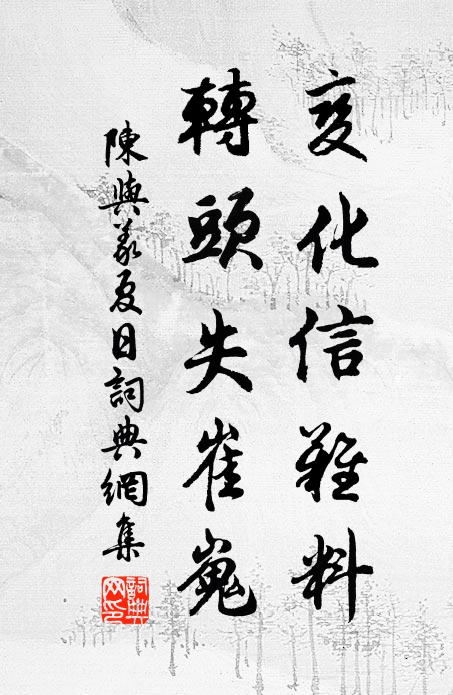 变化信難料
轉頭失崔嵬
陳與義夏日詞典網集
詞典